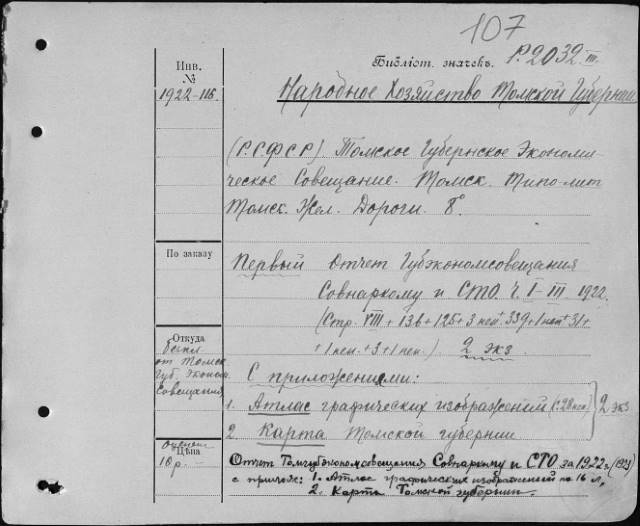 107
Библіот. значекъ. Р.2032 III
Инв.
№
1922-116.
Народное Хозяйство Томской Губернии.
(Р.С.Ф.С.Р.) Томское Губернское Экономи-
ческое Совещание. Томск. Типо-лит
Томск. Жел. Дороги. 8°
По заказу
Первый Отчет Губэкономсовещания
Совнаркому и СТО. Ч. I-III. 1922.
(Стр. VIII + 136 + 125 + 3 неп + 339 + 1 неп + 31 +
+ 1 неп. + 3 + 1 неп.) 2 экз
Откуда
беспл
от Томск.
Губ. Эконом.
Совещания
С приложениями:
1. Атлас графических изображений (с. 28 неп) } 2 экз
2. Карта Томской губернии
оценен
Цѣна
10 р.
Отчет Томгубэкономсовещания Совнаркому и СТО за 1922 г. (1923)
с прилож: 1. Атлас графических изображений на 16 л.
2. Карта Томской губернии.